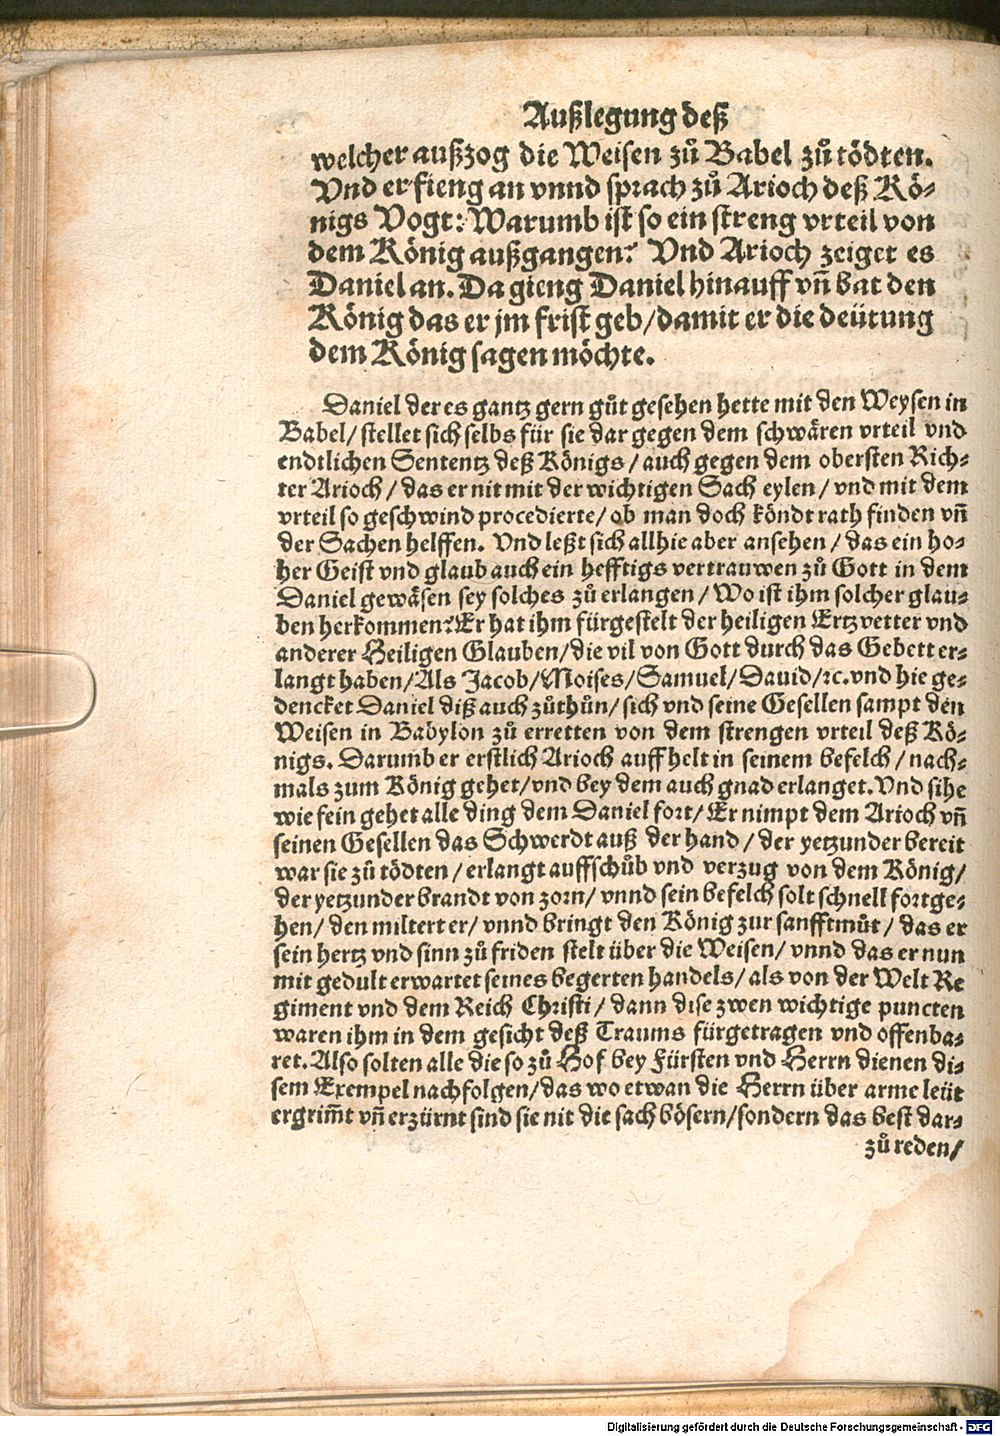 Außlegung deß
welcher außzog die Weisen zů Babel zů tödten.
Vnd er fieng an vnnd sprach zů Arioch deß Kö-
nigs Vogt: Warumb ist so ein streng vrteil von
dem König außgangen? Vnd Arioch zeiget es
Daniel an. Da gieng Daniel hinauff vn̄ bat den
König das er jm frist geb/ damit er die deütung
dem König sagen möchte.
Daniel der es gantz gern gůt gesehen hette mit den Weysen in
Babel/ stellet sich selbs für sie dar gegen dem schwären vrteil vnd
endtlichen Sententz deß Königs/ auch gegen dem obersten Rich-
ter Arioch/ das er nit mit der wichtigen Sach eylen/ vnd mit dem
vrteil so geschwind procedierte/ ob man doch köndt rath finden vn̄
der Sachen helffen. Vnd leßt sich allhie aber ansehen/ das ein ho-
her Geist vnd glaub auch ein hefftigs vertrauwen zů Gott in dem
Daniel gewäsen sey solches zů erlangen/ Wo ist ihm solcher glau-
ben herkommen? Er hat ihm fürgestelt der heiligen Ertzvetter vnd
anderer Heiligen Glauben/ die vil von Gott durch das Gebett er-
langt haben/ Als Jacob/ Moises/ Samuel/ Dauid/ ꝛc. vnd hie ge-
dencket Daniel diß auch zůthůn/ sich vnd seine Gesellen sampt den
Weisen in Babylon zů erretten von dem strengen vrteil deß Kö-
nigs. Darumb er erstlich Arioch auff helt in seinem befelch/ nach-
mals zum König gehet/ vnd bey dem auch gnad erlanget. Vnd sihe
wie fein gehet alle ding dem Daniel fort/ Er nimpt dem Arioch vn̄
seinen Gesellen das Schwerdt auß der hand/ der yetzunder bereit
war sie zů tödten/ erlangt auffschůb vnd verzug von dem König/
der yetzunder brandt von zorn/ vnnd sein befelch solt schnell fortge-
hen/ den miltert er/ vnnd bringt den König zur sanfftmůt/ das er
sein hertz vnd sinn zů friden stelt über die Weisen/ vnnd das er nun
mit gedult erwartet seines begerten handels/ als von der Welt Re
giment vnd dem Reich Christi/ dann dise zwen wichtige puncten
waren ihm in dem gesicht deß Traums fürgetragen vnd offenba-
ret. Also solten alle die so zů Hof bey Fürsten vnd Herrn dienen di-
sem Exempel nachfolgen/ das wo etwan die Herrn über arme leüt
ergrim̄t vn̄ erzürnt sind sie nit die sach bösern/ sondern das best dar-
zů reden/
Digitalisierung gefördert durch die Deutsche Forschungsgemeinschaft - DFG